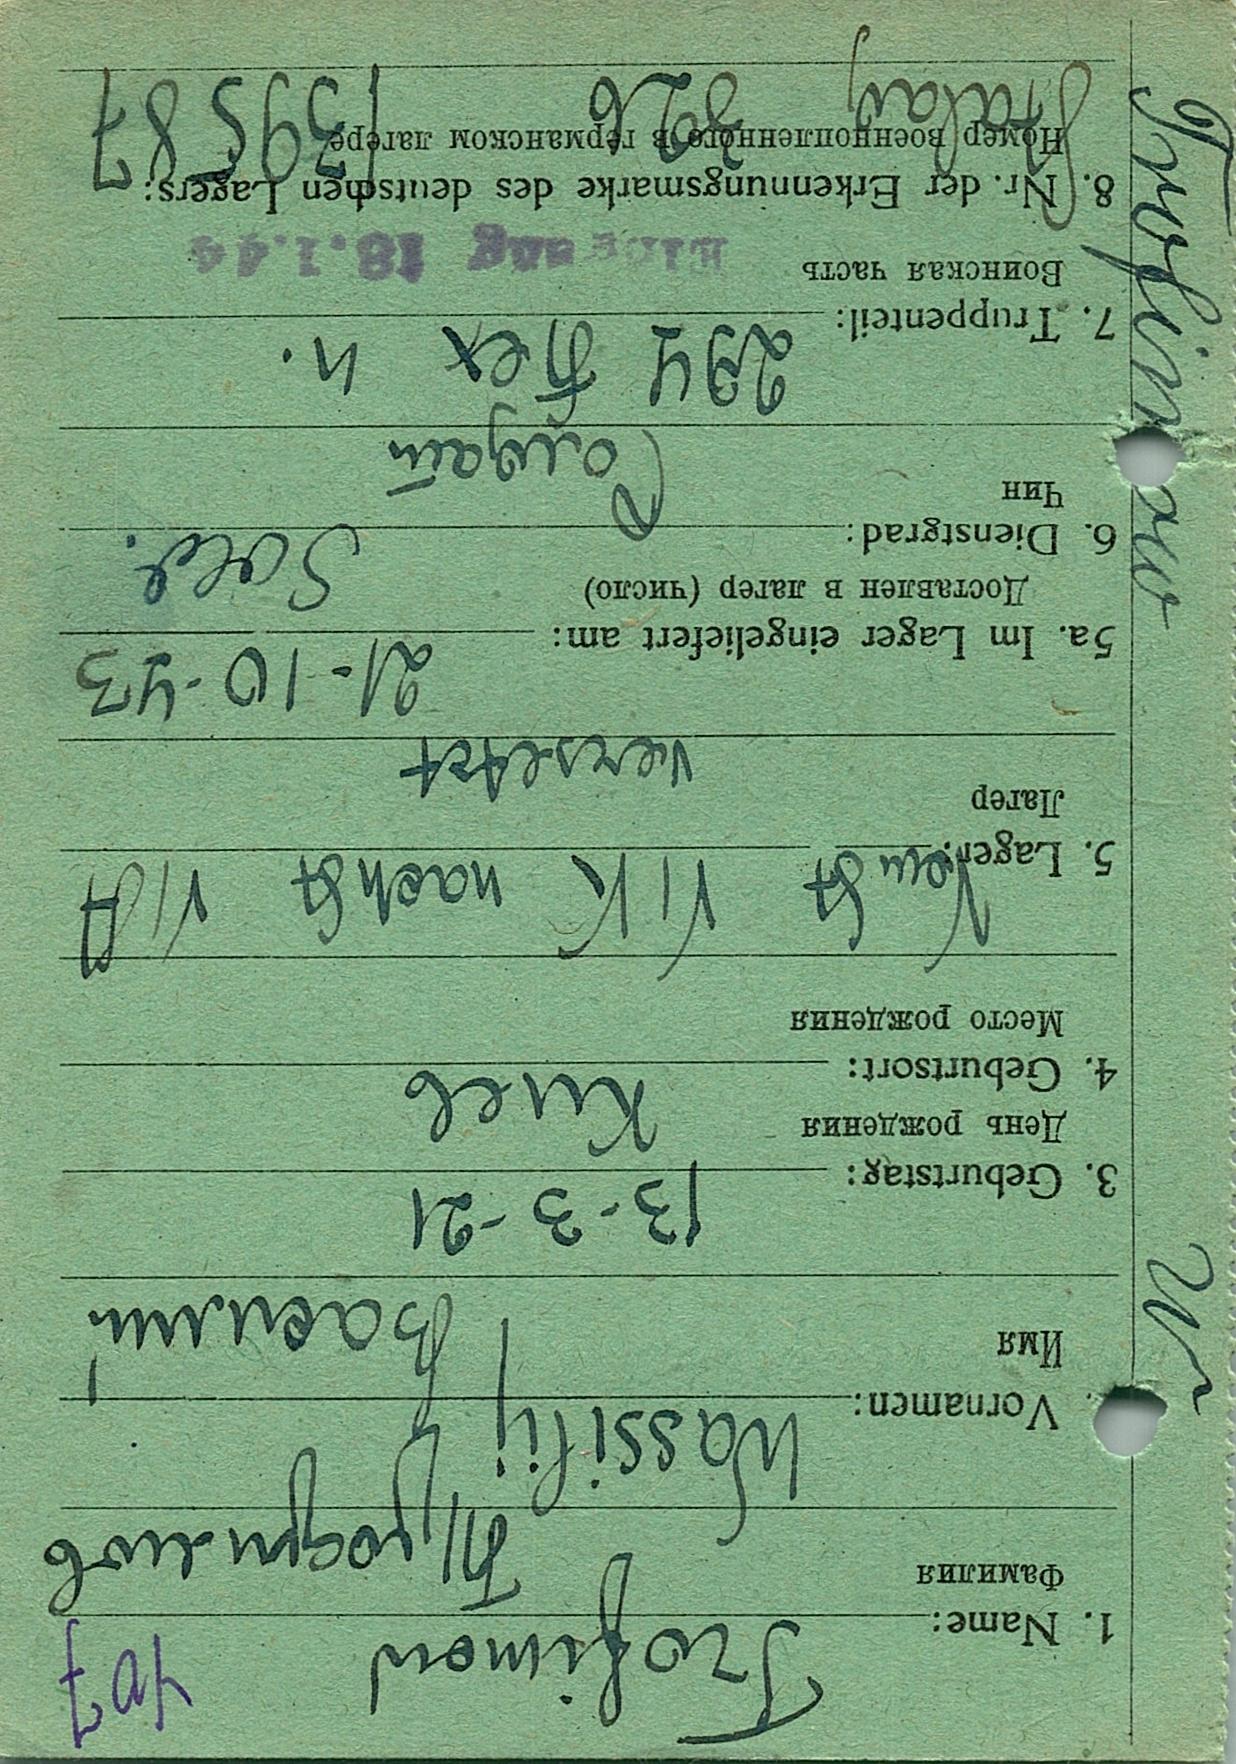 Trofimow
W
407
1. Name: Trofimow
Фамилия Трофимов
Vornamen: Wassilij
Имя Василий
3. Geburtstag: 13-3-21
День рождения
4. Geburtsort: Киев
Место рождения
5. Lager: Von St VI K nach St VI A
Лагер versetzt
5a. Im Lager eingeliefert am: 21-10-43
Доставлен в лагер (число)
6. Dienstgrad: Sold.
Чин Солдат
7. Truppenteil: 294 п.
Воинская часть Eingang 18.1.44
8. Nr. der Erkennungsmarke des deutschen Lagers:
Номер военнопленного в германском лагере
Stalag 326 139587